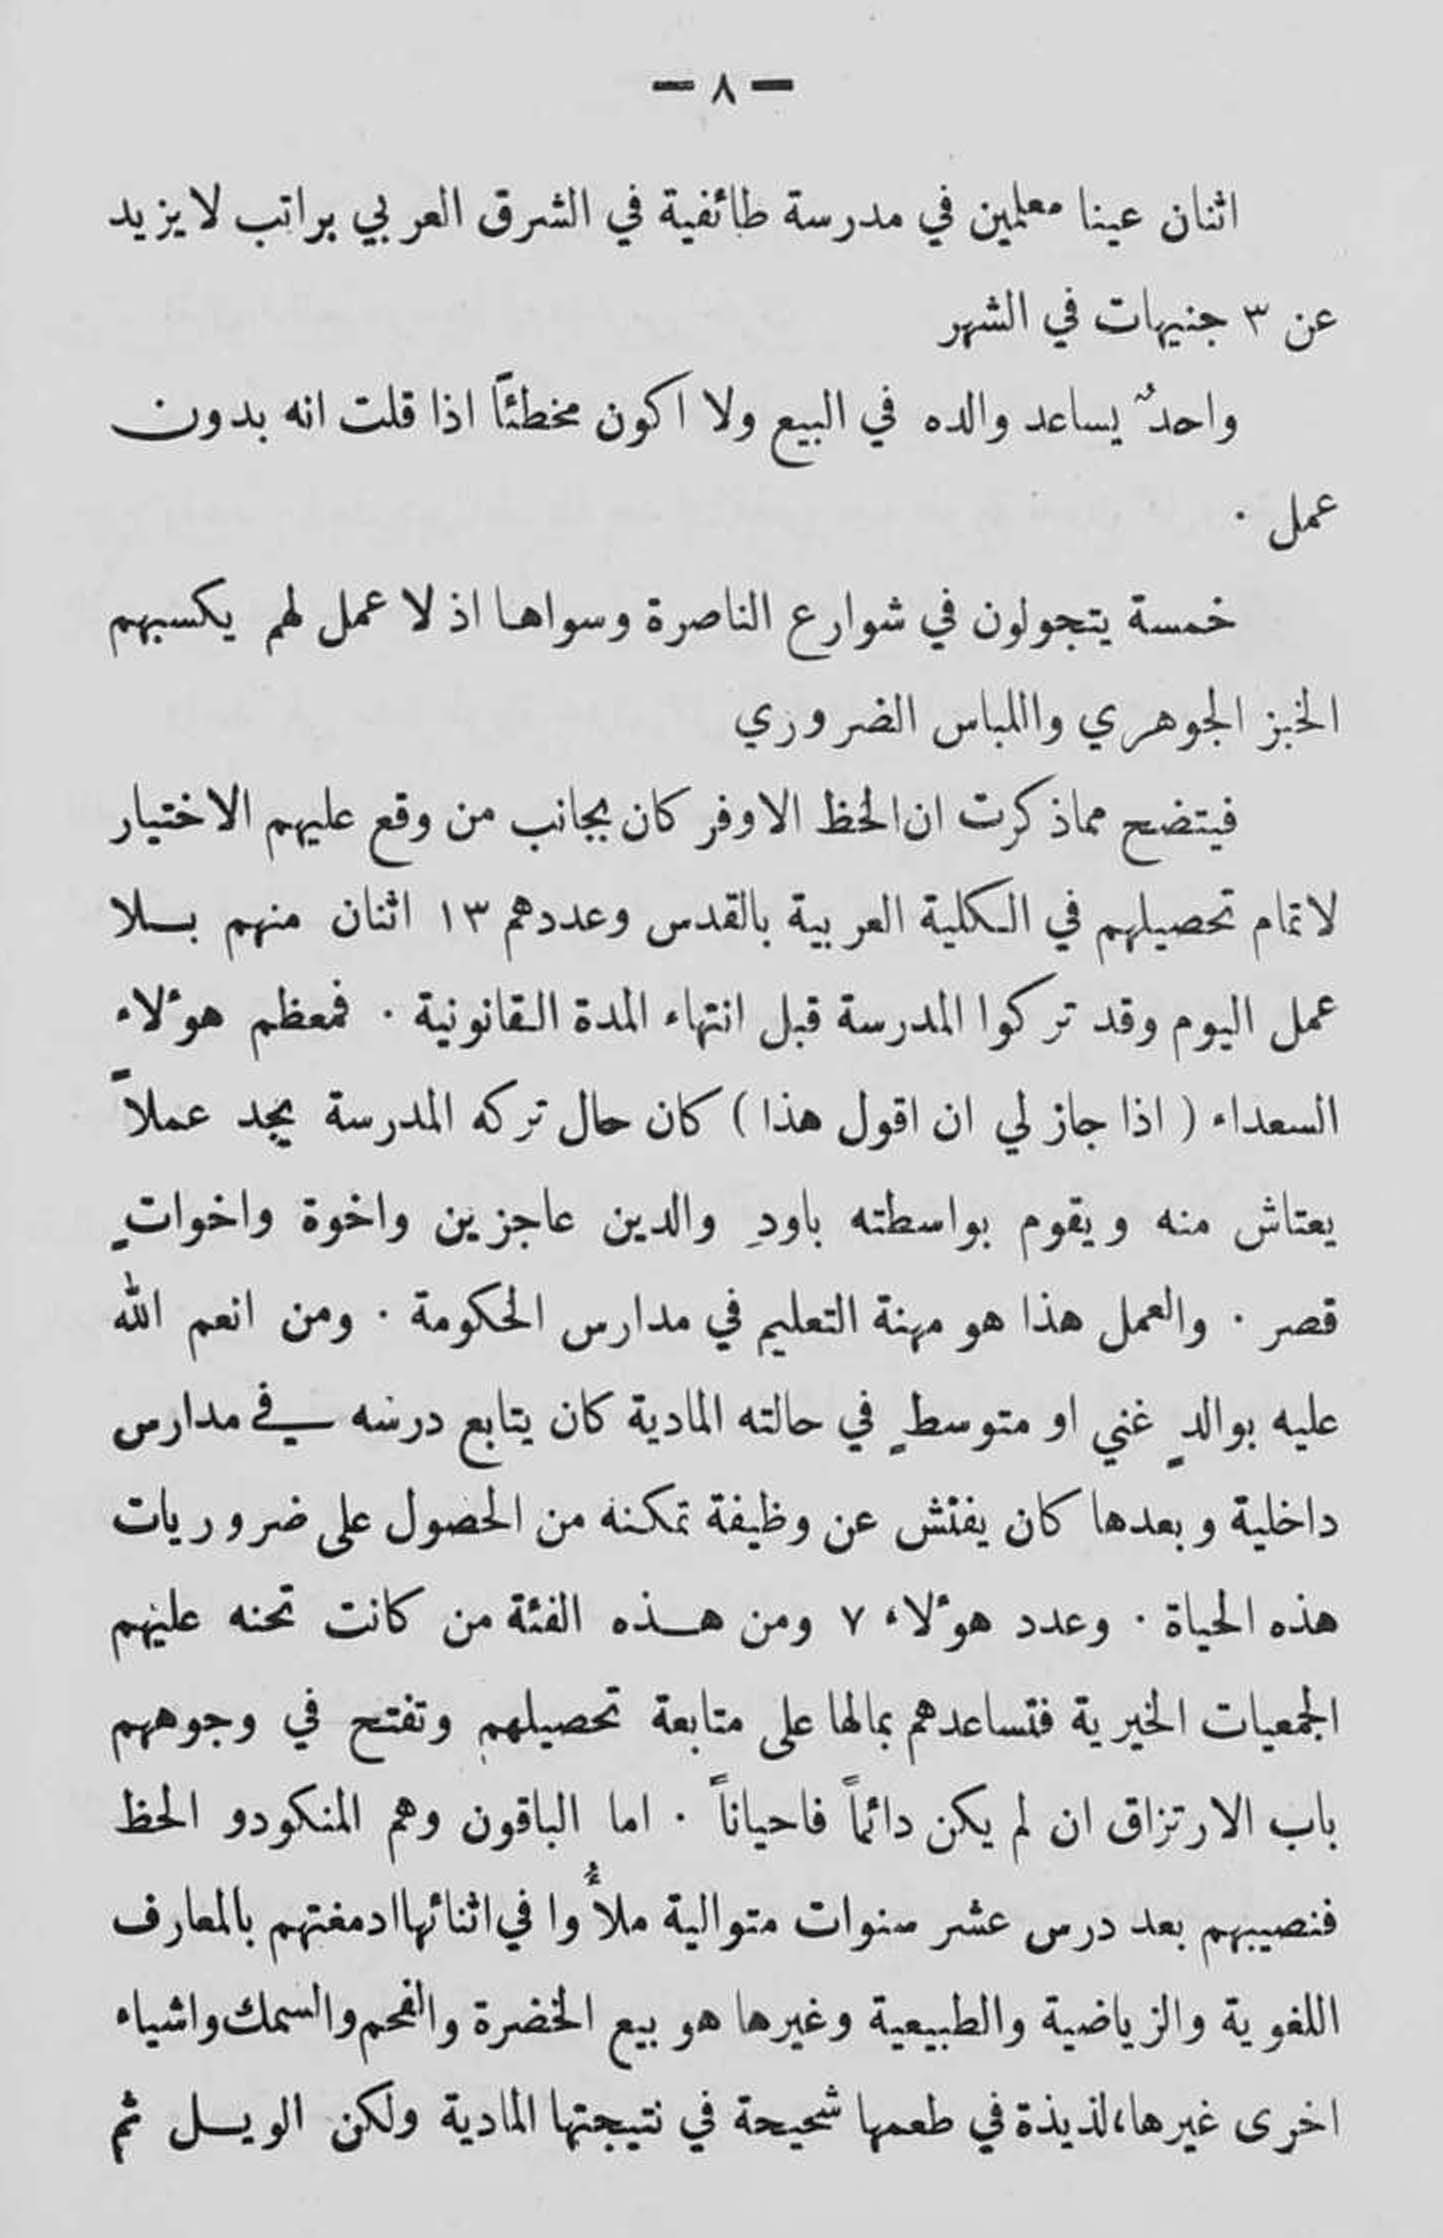 — ٨ —
اثنان عينا معلمين في مدرسة طائفية في الشرق العربي براتب لا يزيد
عن ٣ جنيهات في الشهر
واحدٌ يساعد والده في البيع ولا اكون مخطئاً اذا قلت انه بدون
عمل ٠
خمسة يتجولون في شوارع الناصرة وسواها اذ لا عمل لهم يكسبهم
الخبز الجوهري واللباس الضروري
فيتضح مما ذكرت ان الحظ الاوفر كان بجانب من وقع عليهم الاختيار
لاتمام تحصيلهم في الكلية العربية بالقدس وعددهم ١٣ اثنان منهم بلا
عمل اليوم وقد تركوا المدرسة قبل انتهاء المدة القانونية ٠ فمعظم هوٴلاءِ
السعداء ( اذا جاز لي ان اقول هذا ) كان حال تركه المدرسة يجد عملاً
يعتاش منه ويقوم بواسطته باودِ والدين عاجزين واخوة واخواتٍ
قصر ٠ والعمل هذا هو مهنة التعليم في مدارس الحكومة ٠ ومن انعم الله
عليه بوالدٍ غني او متوسطٍ في حالته المادية كان يتابع درسه في مدارس
داخلية وبعدها كان يفتش عن وظيفة تمكنه من الحصول على ضروريات
هذه الحياة ٠ وعدد هوٴلاء ٧ ومن هذه الفئة من كانت تحنه عليهم
الجمعيات الخيرية فتساعدهم بمالها على متابعة تحصيلهم وتفتح في وجوههم
باب الارتزاق ان لم يكن دائماً فاحياناً ٠ اما الباقون وهم المنكودو الحظ
فنصيبهم بعد درس عشر سنوات متوالية ملأُوا في اثنائها ادمغتهم بالمعارف
اللغوية والرياضية والطبيعية وغيرها هو بيع الخضرة والفحم والسمك واشياء
اخرى غيرها، لذيذة في طعمها شحيحة في نتيجتها المادية ولكن الويل ثم